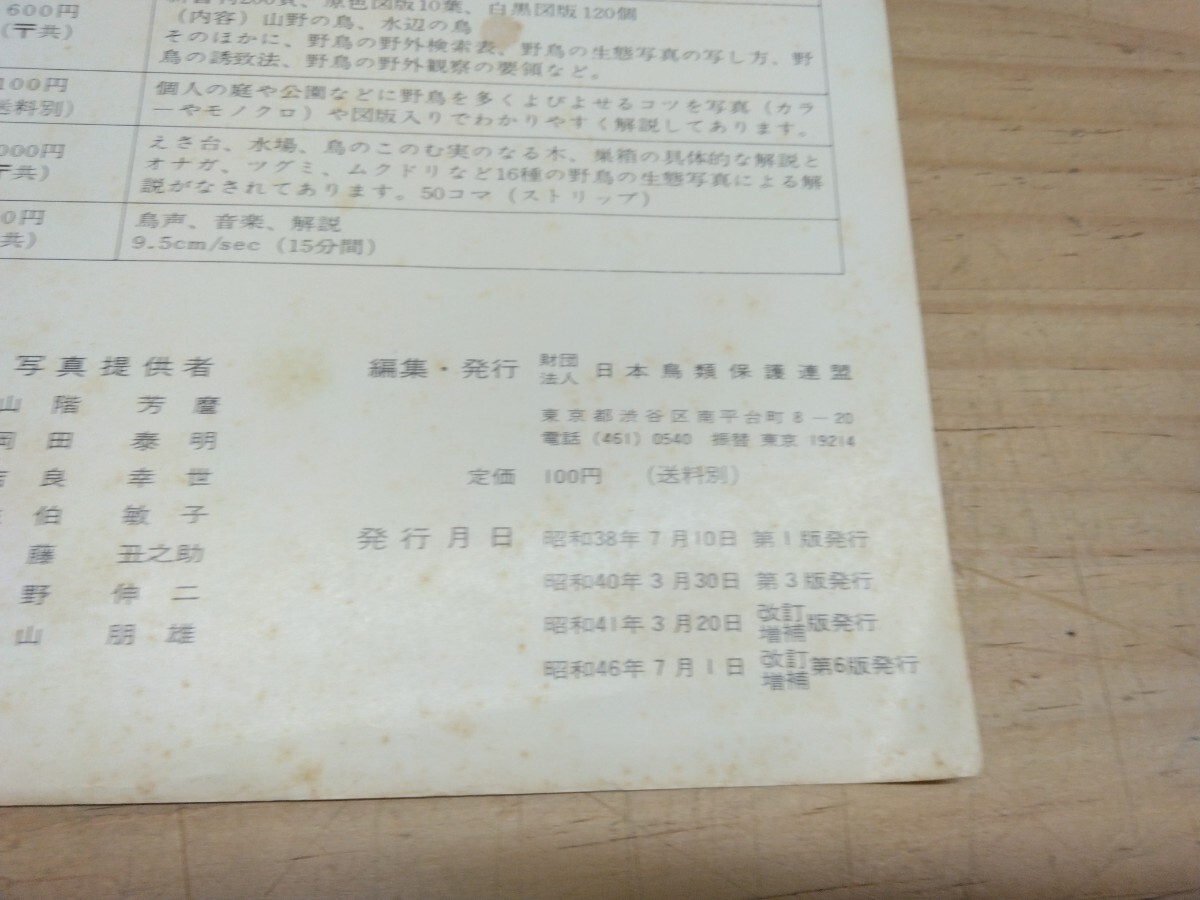 600円
(〒共)
新書判200頁、原色図版10葉、白黒図版120個
(内容) 山野の鳥、水辺の鳥
そのほかに、野鳥の野外検索表、野鳥の生態写真の写し方、野
鳥の誘致法、野鳥の野外観察の要領など。
100円
送料別)
個人の庭や公園などに野鳥を多くよびよせるコツを写真 (カラ
ーやモノクロ) や図版入りでわかりやすく解説してあります。
000円
〒共)
えさ台、水場、鳥のこのむ実のなる木、巣箱の具体的な解説と
オナガ、ツグミ、ムクドリなど16種の野鳥の生態写真による解
説がなされてあります。50コマ (ストリップ)
0円
共)
鳥声、音楽、解説
9.5cm/sec (15分間)
写真提供者
山階 芳麿
岡田 泰明
吉良 幸世
佐伯 敏子
藤 丑之助
野 伸二
山 朋雄
編集・発行 財団法人 日本鳥類保護連盟
東京都渋谷区南平台町8-20
電話 (461) 0540 振替 東京 19214
定価 100円 (送料別)
発行月日 昭和38年7月10日 第1版発行
昭和40年3月30日 第3版発行
昭和41年3月20日 改訂増補版発行
昭和46年7月1日 改訂増補第6版発行